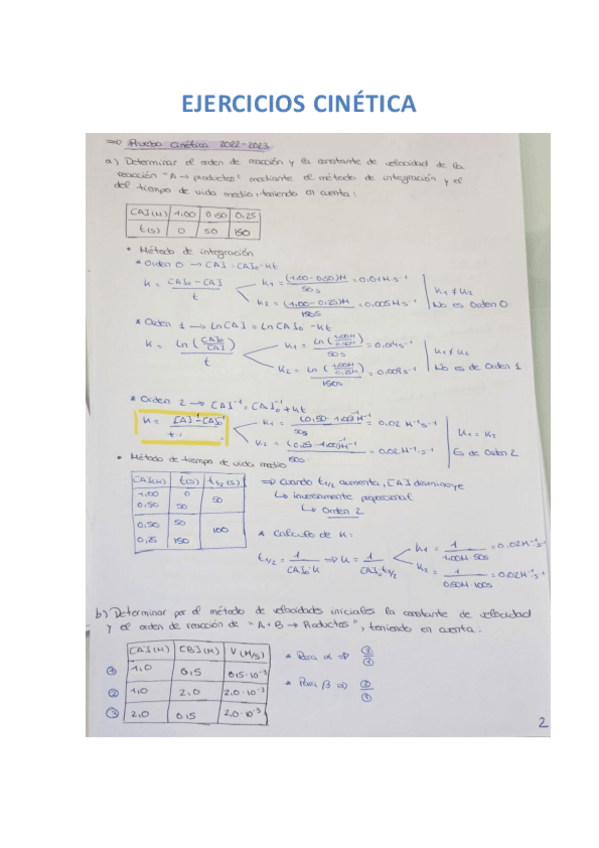 EJERCICIOS CINÉTICA
=> Prueba Cinética 2022-2023
a) Determinar el orden de reacción y la constante de velocidad de la
reacción "A → productos" mediante el método de integración y el
del tiempo de vida medio, teniendo en cuenta:
[A](M) 1,00 0,50 0,25
t(s) 0 50 150
• Método de integración
* Orden 0 → [A] = [A]₀ - Kt
K = [A]₀ - [A] / t
K₁ = (1,00 - 0,50)M / 50s = 0,01 M s⁻¹
K₂ = (1,00 - 0,25)M / 150s = 0,005 M s⁻¹
K₁ ≠ K₂
No es Orden 0
* Orden 1 → Ln[A] = Ln[A]₀ - Kt
K = Ln([A]₀/[A]) / t
50s
150s
K₁ ≠ K₂
No es de Orden 1
* Orden 2 → [A]⁻¹ = [A]₀⁻¹ + Kt
K = [A]⁻¹ - [A]₀⁻¹ / t
K₁ = (0,50 - 1,00)⁻¹ M⁻¹ / 50s = 0,02 M⁻¹ s⁻¹
K₂ = (0,25 - 1,00)⁻¹ M⁻¹ / 150s = 0,02 M⁻¹ · s⁻¹
K₁ = K₂
Es de Orden 2
• Método de tiempo de vida medio
[A](M) t(s) t½(s)
1,00 0 50
0,50 50
0,50 50 100
0,25 150
=> Cuando t½ aumenta, [A] disminuye
↳ Inversamente proporcional
↳ Orden 2
* Calculo de K:
t½ = 1 / [A]₀·K => K = 1 / [A]₀ t½
K₁ = 1 / 1,00M · 50s = 0,02 M⁻¹ s⁻¹
K₂ = 1 / 0,50M · 100s = 0,02 M⁻¹ s⁻¹
b) Determinar por el método de velocidades iniciales la constante de velocidad
y el orden de reacción de "A + B → Productos", teniendo en cuenta:
[A](M) [B](M) V(M/s)
① 1,0 0,5 0,5·10⁻³
② 1,0 2,0 2,0·10⁻³
③ 2,0 0,5 2,0·10⁻³
* Para α => ③/①
* Para β => ②/①
2